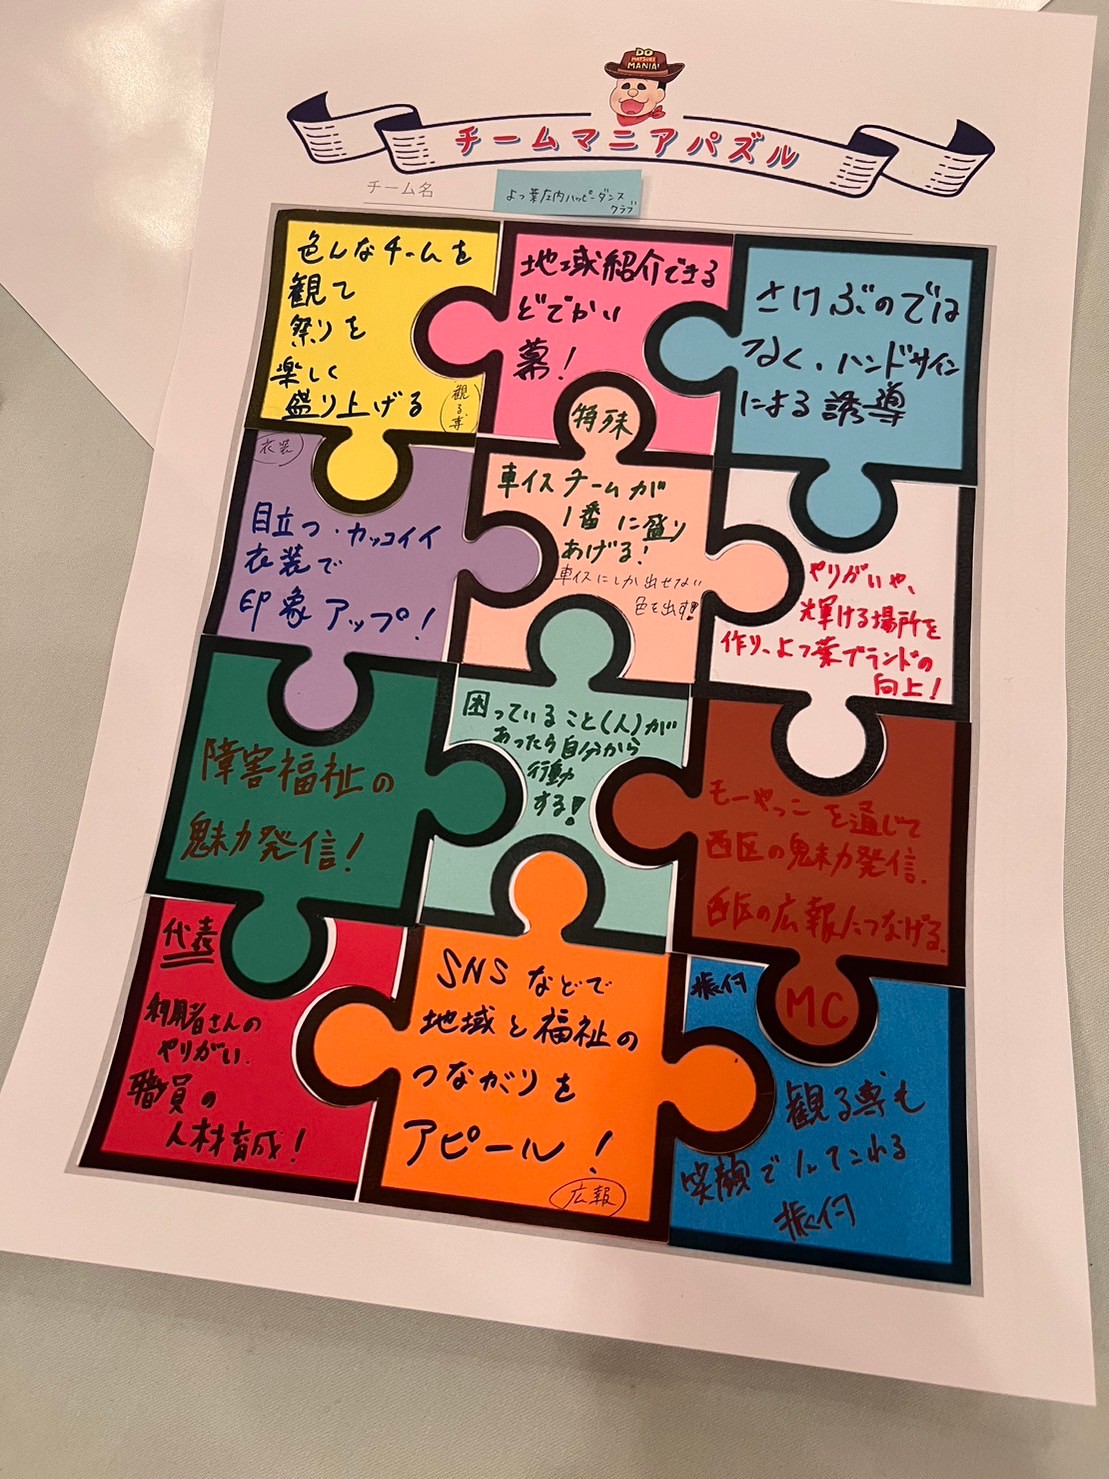 DO
MATSURI
MANIA!
チームマニアパズル
チーム名
よつ葉庄内ハッピーダンス
クラブ
色んなチームを
観て
祭りを
楽しく
盛り上げる
観る専
地域紹介できる
どでかい
幕！
さけぶのでは
なく、ハンドサイン
による誘導
衣装
目立つ・カッコイイ
衣装で
印象アップ！
特殊
車イスチームが
1番に盛り
あげる！
車イスにしか出せない
色を出す!!
やりがいや、
輝ける場所を
作り、よつ葉ブランドの
向上！
障害福祉の
魅力発信！
困っていること(人)が
あったら自分から
行動
する！
モーやっこを通じて
西区の魅力発信.
西区の広報につなげる.
MC
代表
利用者さんの
やりがい.
職員の
人材育成！
SNSなどで
地域と福祉の
つながりを
アピール！
広報
振付
観る専も
笑顔で
振付